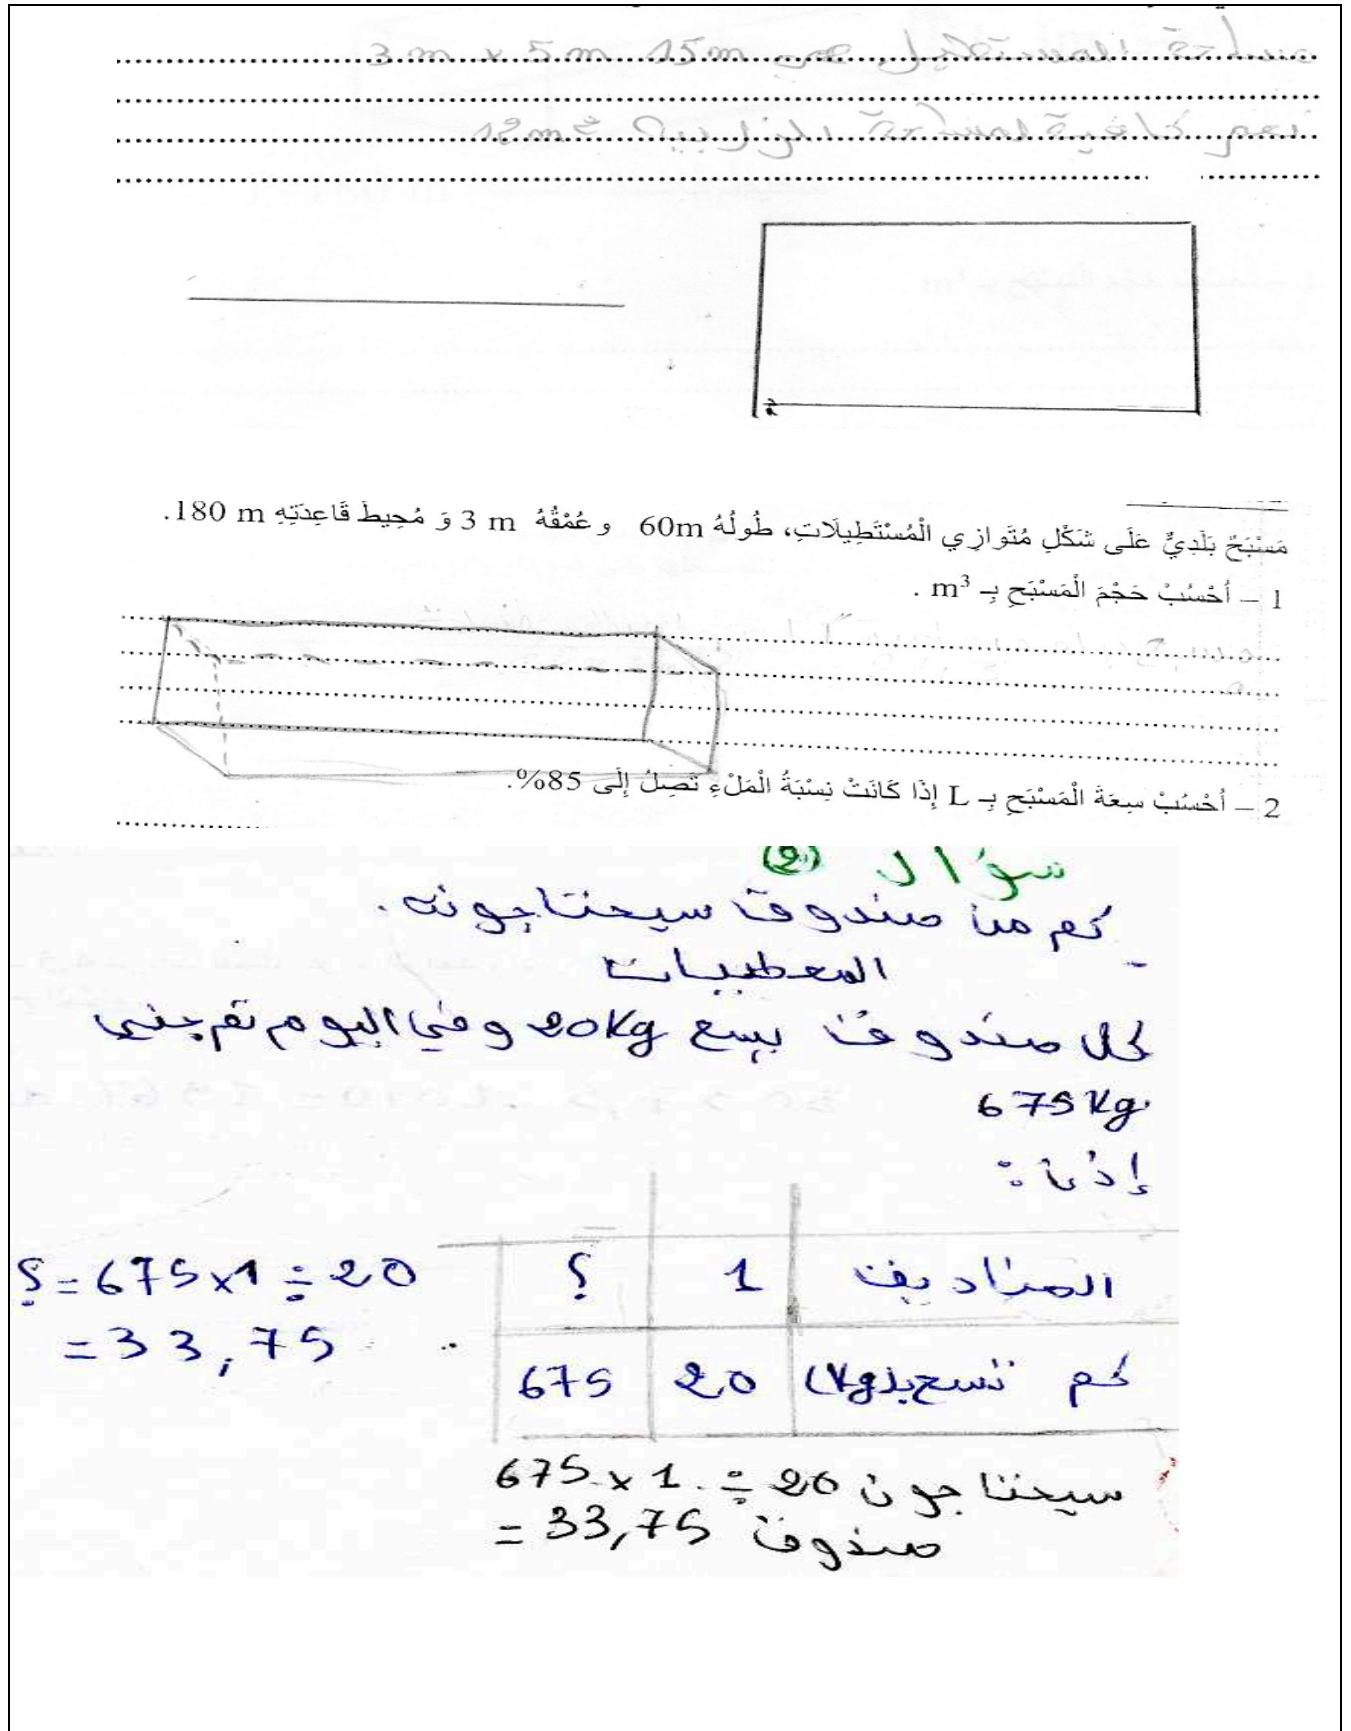 مساحة المستطيل هي 3m x 5m 15m
نعم كافية لمساحة الزرابي 12m²
مَسْبَحٌ بَلَدِيٌّ عَلَى شَكْلِ مُتَوازِي الْمُسْتَطِيلَاتِ، طُولُهُ 60m و عُمْقُهُ 3 m وَ مُحِيطُ قَاعِدَتِهِ 180 m.
1 – أَحْسُبْ حَجْمَ الْمَسْبَحِ بِـ m³ .
2 – أَحْسُبْ سِعَةَ الْمَسْبَحِ بِـ L إِذَا كَانَتْ نِسْبَةُ الْمَلْءِ تَصِلُ إِلَى 85%.
سؤال (2)
- كم من صندوق سيحتاجونه.
المعطيات
كل صندوق يسع 20Kg وفي اليوم تم جني
675Kg
إذن :
الصناديق 1 ؟ ؟ = 675 x 1 ÷ 20
= 33,75
كم تسع بـ(Kg) 20 675
سيحتاجون 675 x 1 ÷ 20
= 33,75 صندوق